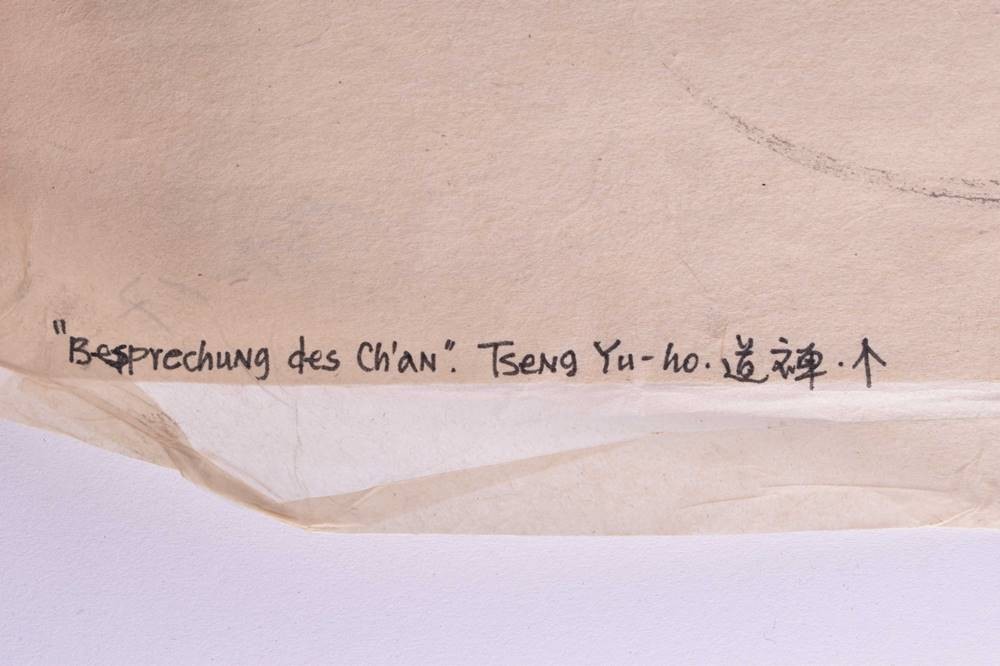 "Besprechung des Ch'an". Tseng Yu-ho. 道禅. ↑